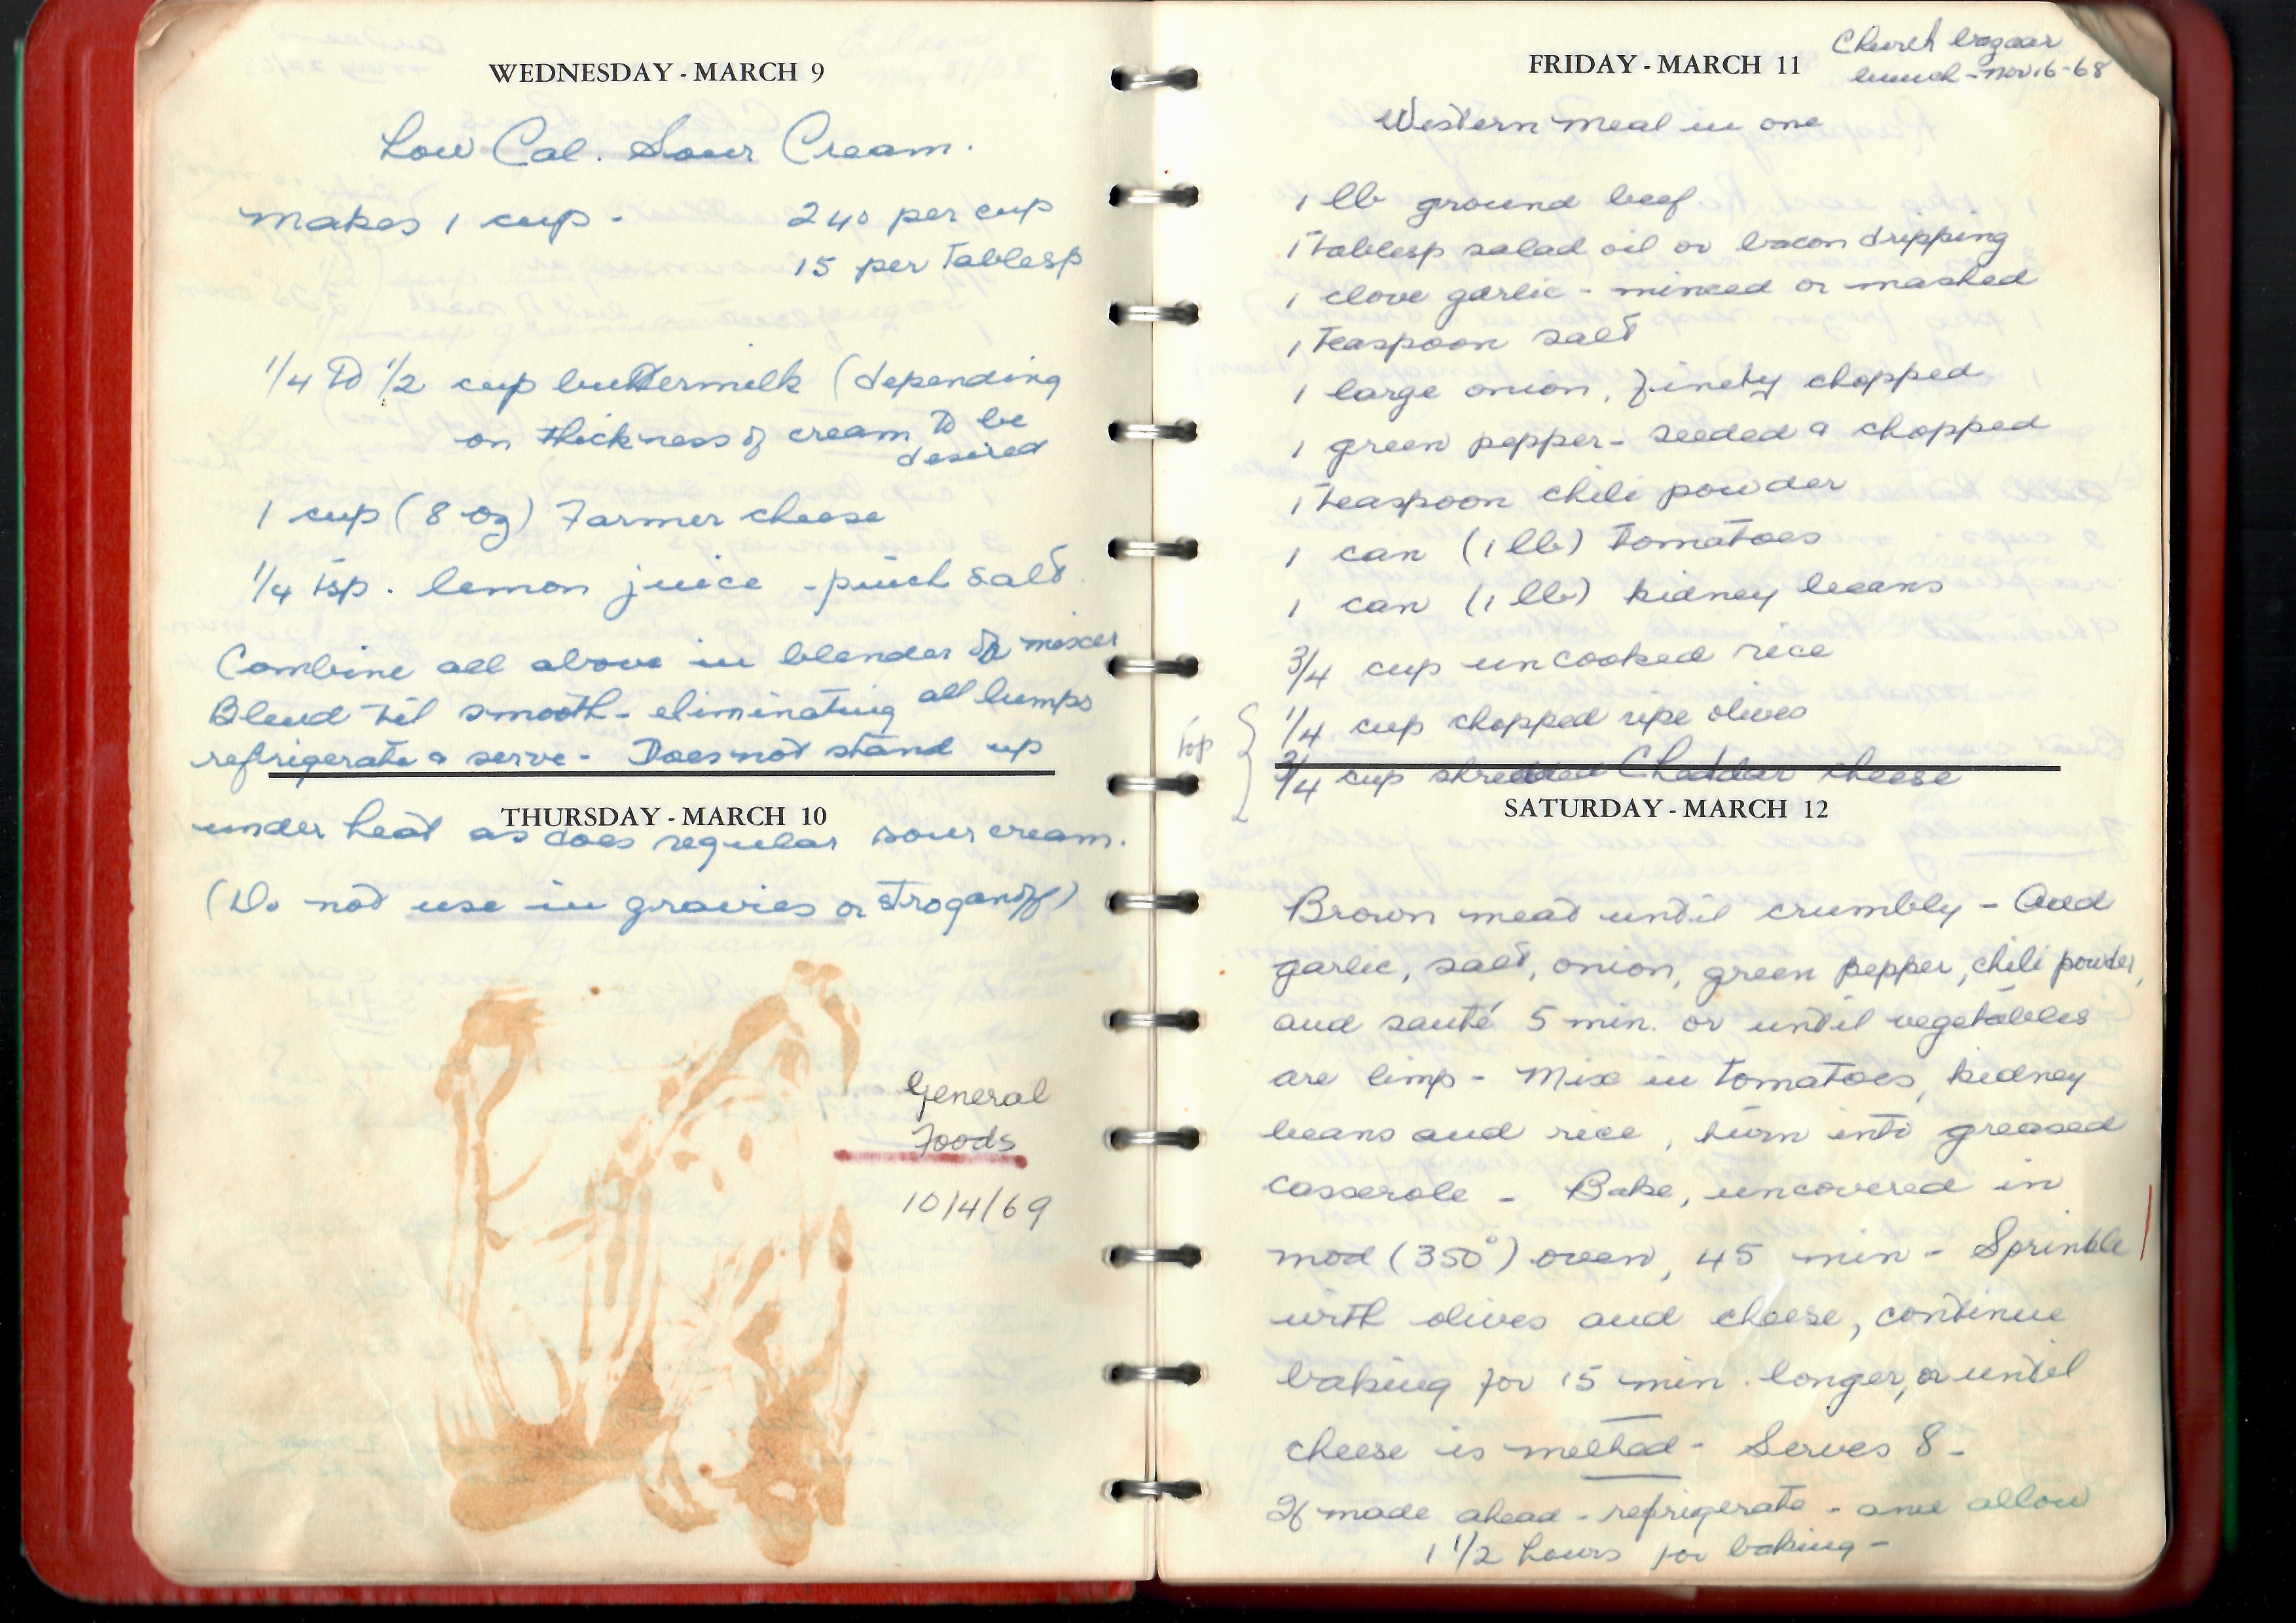 WEDNESDAY - MARCH 9
Low Cal. Sour Cream.
makes 1 cup - 240 per cup
15 per Tablesp
1/4 to 1/2 cup buttermilk (depending
on thickness of cream to be
desired
1 cup (8 oz) Farmer cheese
1/4 tsp. lemon juice - pinch salt.
Combine all above in blender or mixer
Blend til smooth - eliminating all lumps
refrigerate & serve - Does not stand up
THURSDAY - MARCH 10
under heat as does regular sour cream.
(Do not use in gravies or stroganoff)
General
Foods
10/4/69
FRIDAY - MARCH 11
Church bazaar
lunch - Nov 16 - 68
Western meal in one
1 lb ground beef.
1 tablesp salad oil or bacon dripping
1 clove garlic - minced or mashed
1 teaspoon salt
1 large onion, finely chopped
1 green pepper - seeded & chopped
1 teaspoon chili powder
1 can (1 lb) tomatoes
1 can (1 lb) kidney beans
3/4 cup uncooked rice
Top { 1/4 cup chopped ripe olives
3/4 cup shredded Cheddar cheese
SATURDAY - MARCH 12
Brown meat until crumbly - Add
garlic, salt, onion, green pepper, chili powder,
and sauté 5 min. or until vegetables
are limp - Mix in tomatoes, kidney
beans and rice, turn into greased
casserole - Bake, uncovered in
mod (350°) oven, 45 min - Sprinkle
with olives and cheese, continue
baking for 15 min. longer, or until
cheese is melted - Serves 8 -
If made ahead - refrigerate - and allow
1 1/2 hours for baking -